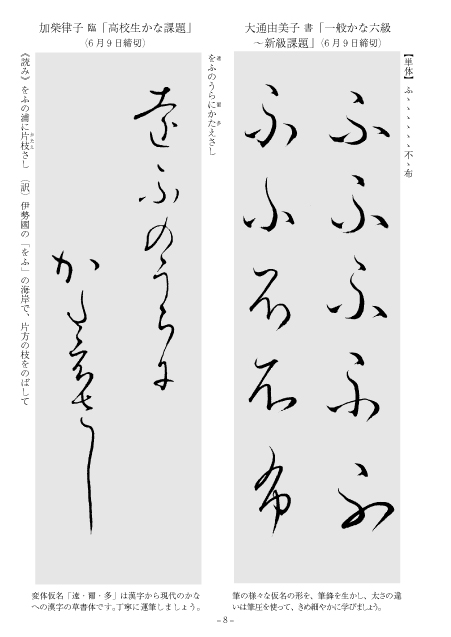 大通由美子 書「一般かな六級
～新級課題」(6月9日締切)
【単体】ふヽヽヽヽヽヽ不ヽ布
ふふふふふ
ふふ不不布
筆の様々な仮名の形を、筆鋒を生かし、太さの違
いは筆圧を使って、きめ細やかに学びましょう。
加柴律子 臨「高校生かな課題」
(6月9日締切)
をふのうらにかたえさし
遠ふのうらに
かたえさし
《読み》をふの浦に片枝さし (訳) 伊勢國の「をふ」の海岸で、片方の枝をのばして
変体仮名「遠・爾・多」は漢字から現代のかな
への漢字の草書体です。丁寧に運筆しましょう。
– 8 –